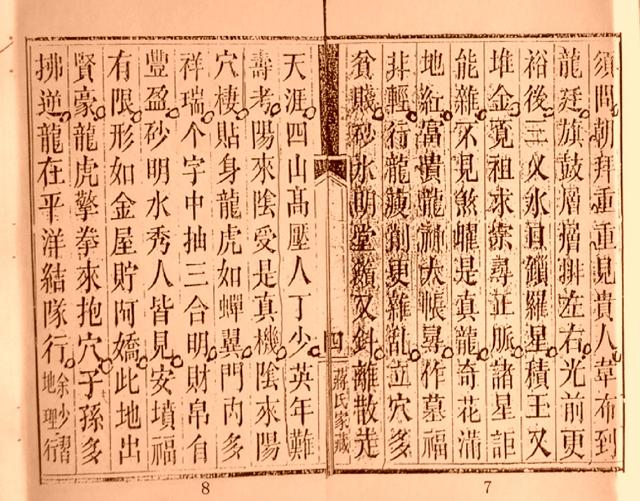 須問朝拜重重見貴人韋布到
龍廷旗鼓層層排左右光前更
裕後三义水口鎖羅星積玉又
堆金覓祖求宗尋正脈諸星詎
能雜不見煞曜是真龍奇花滿
地紅富貴龍神大帳尋作墓福
非輕行龍瘦削更雜亂立穴多
貧賤砂水明堂鎖又斜離散走
四
蔣氏家藏
天涯四山高壓人丁少英年難
壽考陽來陰受是真機陰來陽
穴棲貼身龍虎如蟬翼門内多
祥瑞个字中抽三合明財帛自
豐盈砂明水秀人皆見安墳福
有限形如金屋貯阿嬌此地出
賢豪龍虎擎拳來抱穴子孫多
拂逆龍在平洋結隊行余少習地理行
8
7